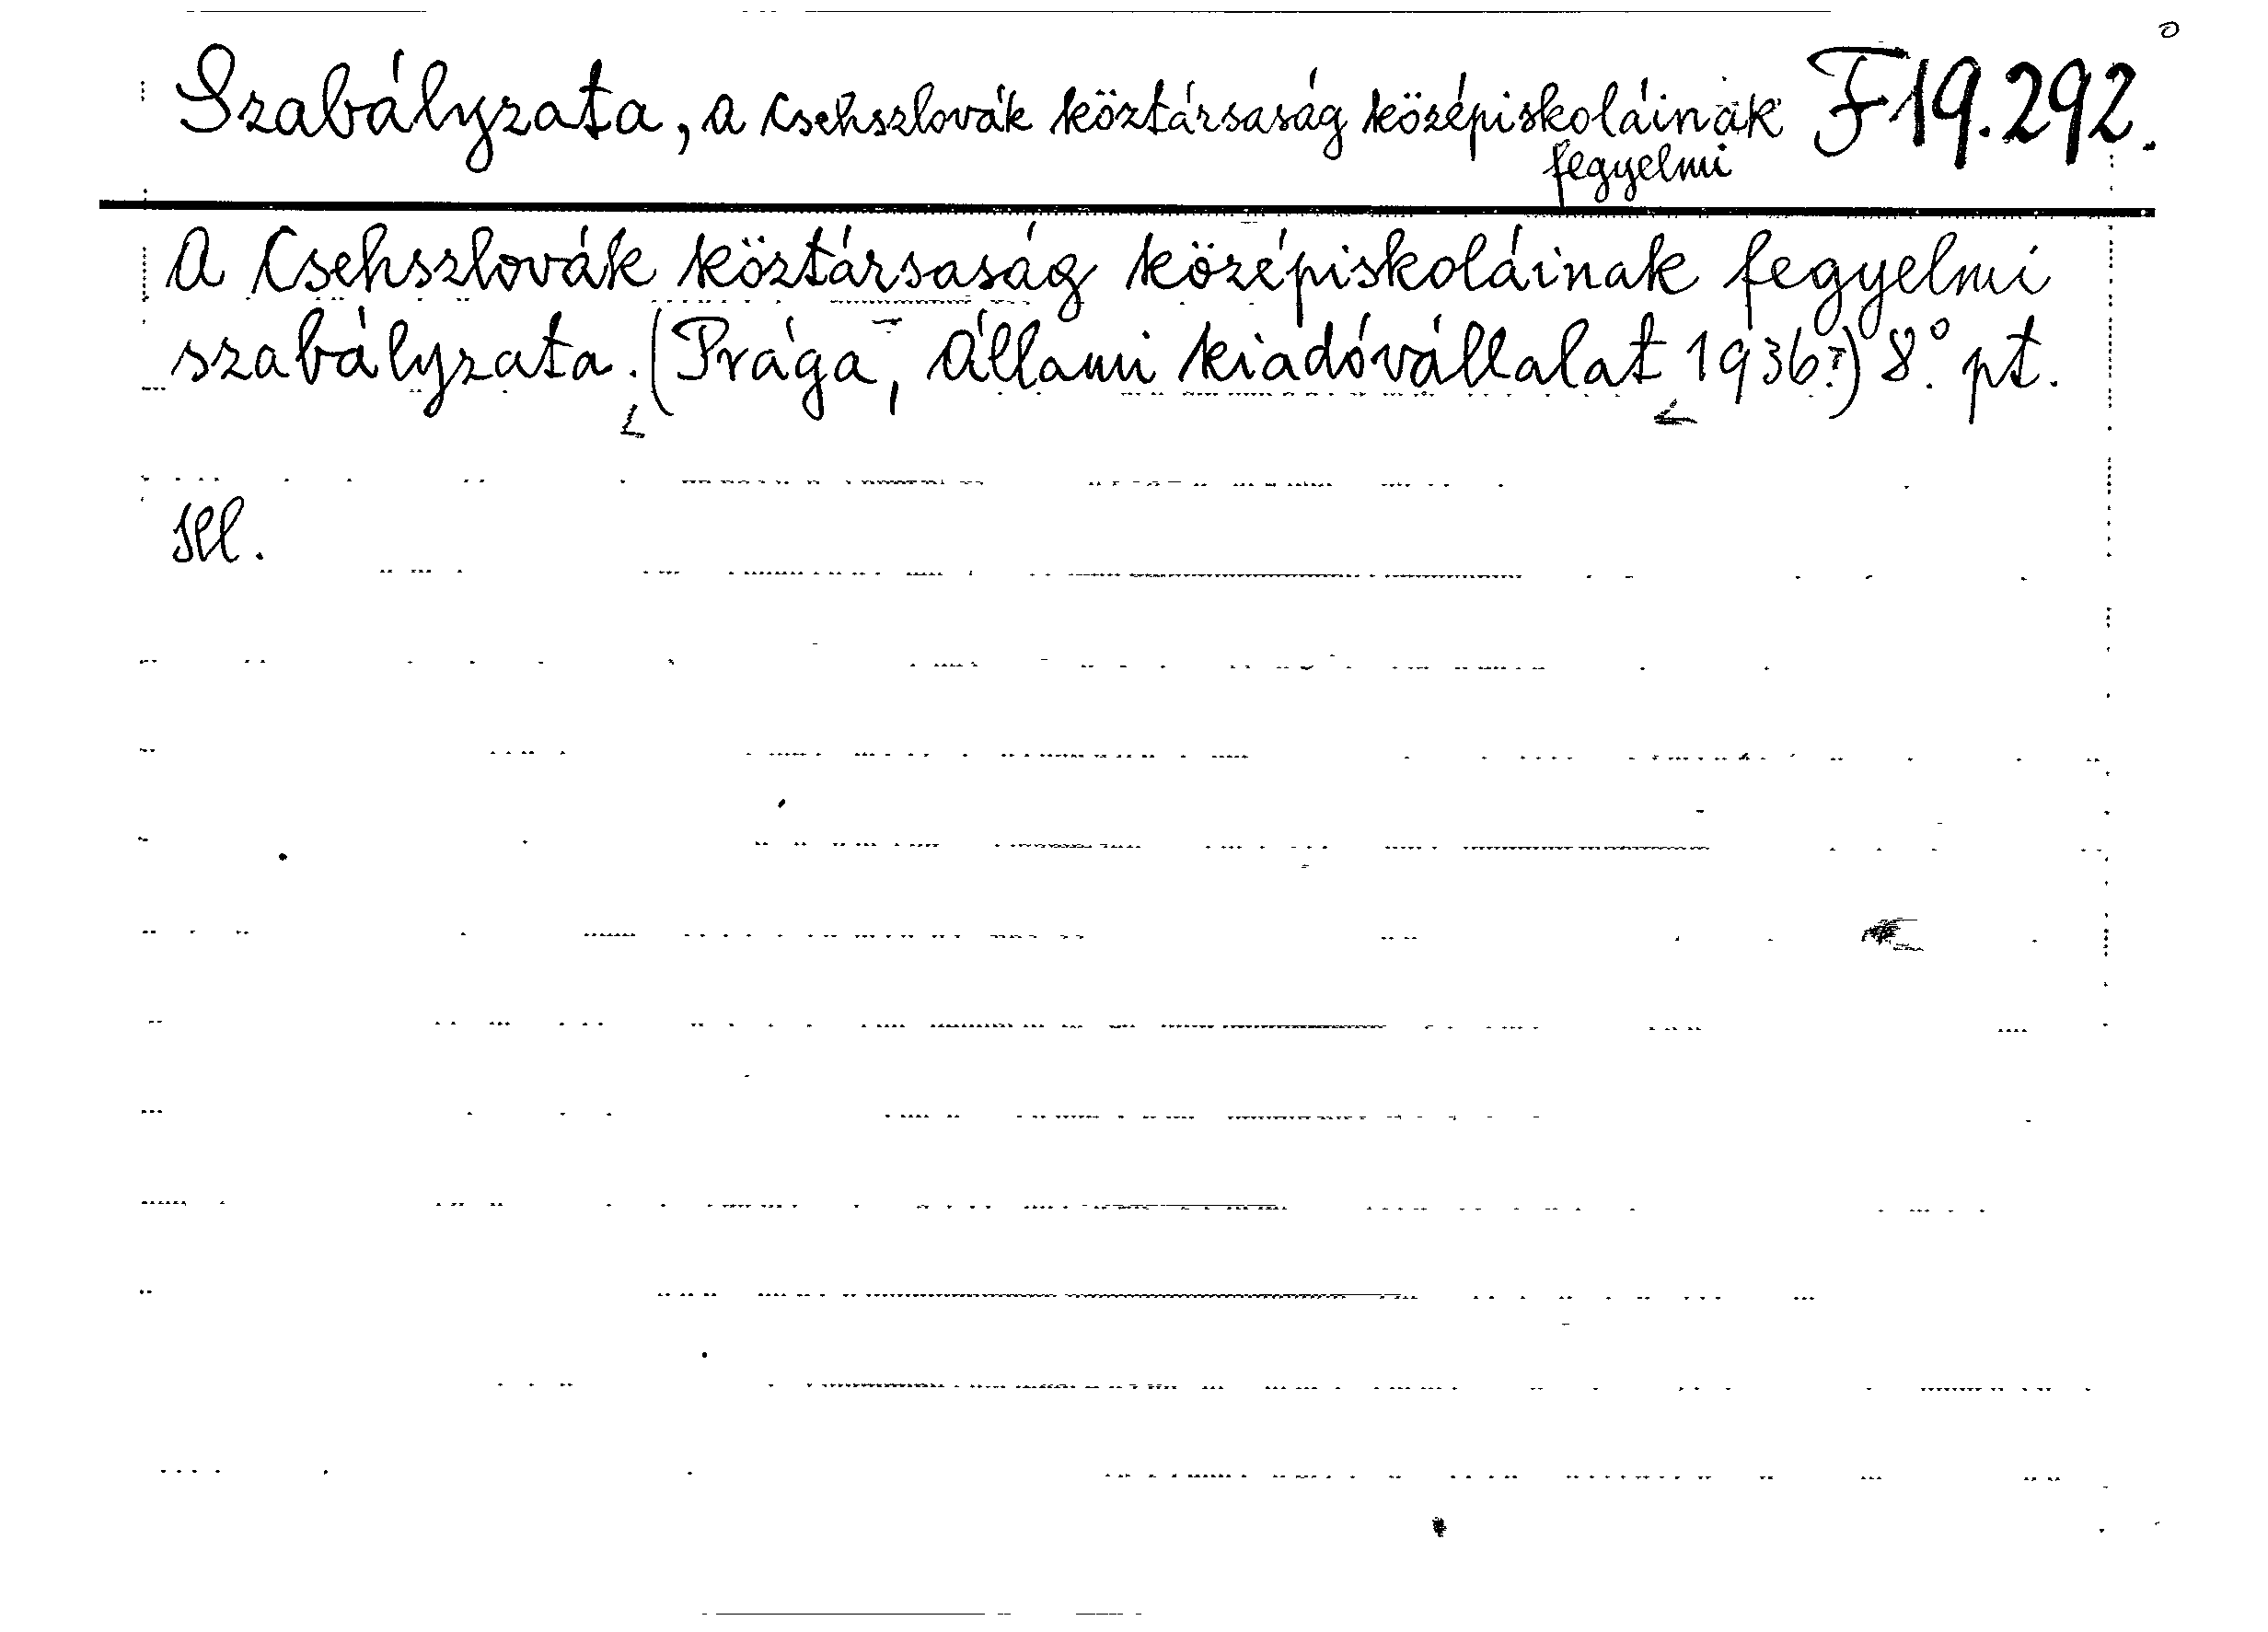 Szabályzata, a Csehszlovák köztársaság középiskoláinak F 19.292.
fegyelmi
A Csehszlovák köztársaság középiskoláinak fegyelmi
szabályzata. (Prága, Állami kiadóvállalat 1936.?) 8.° pt.